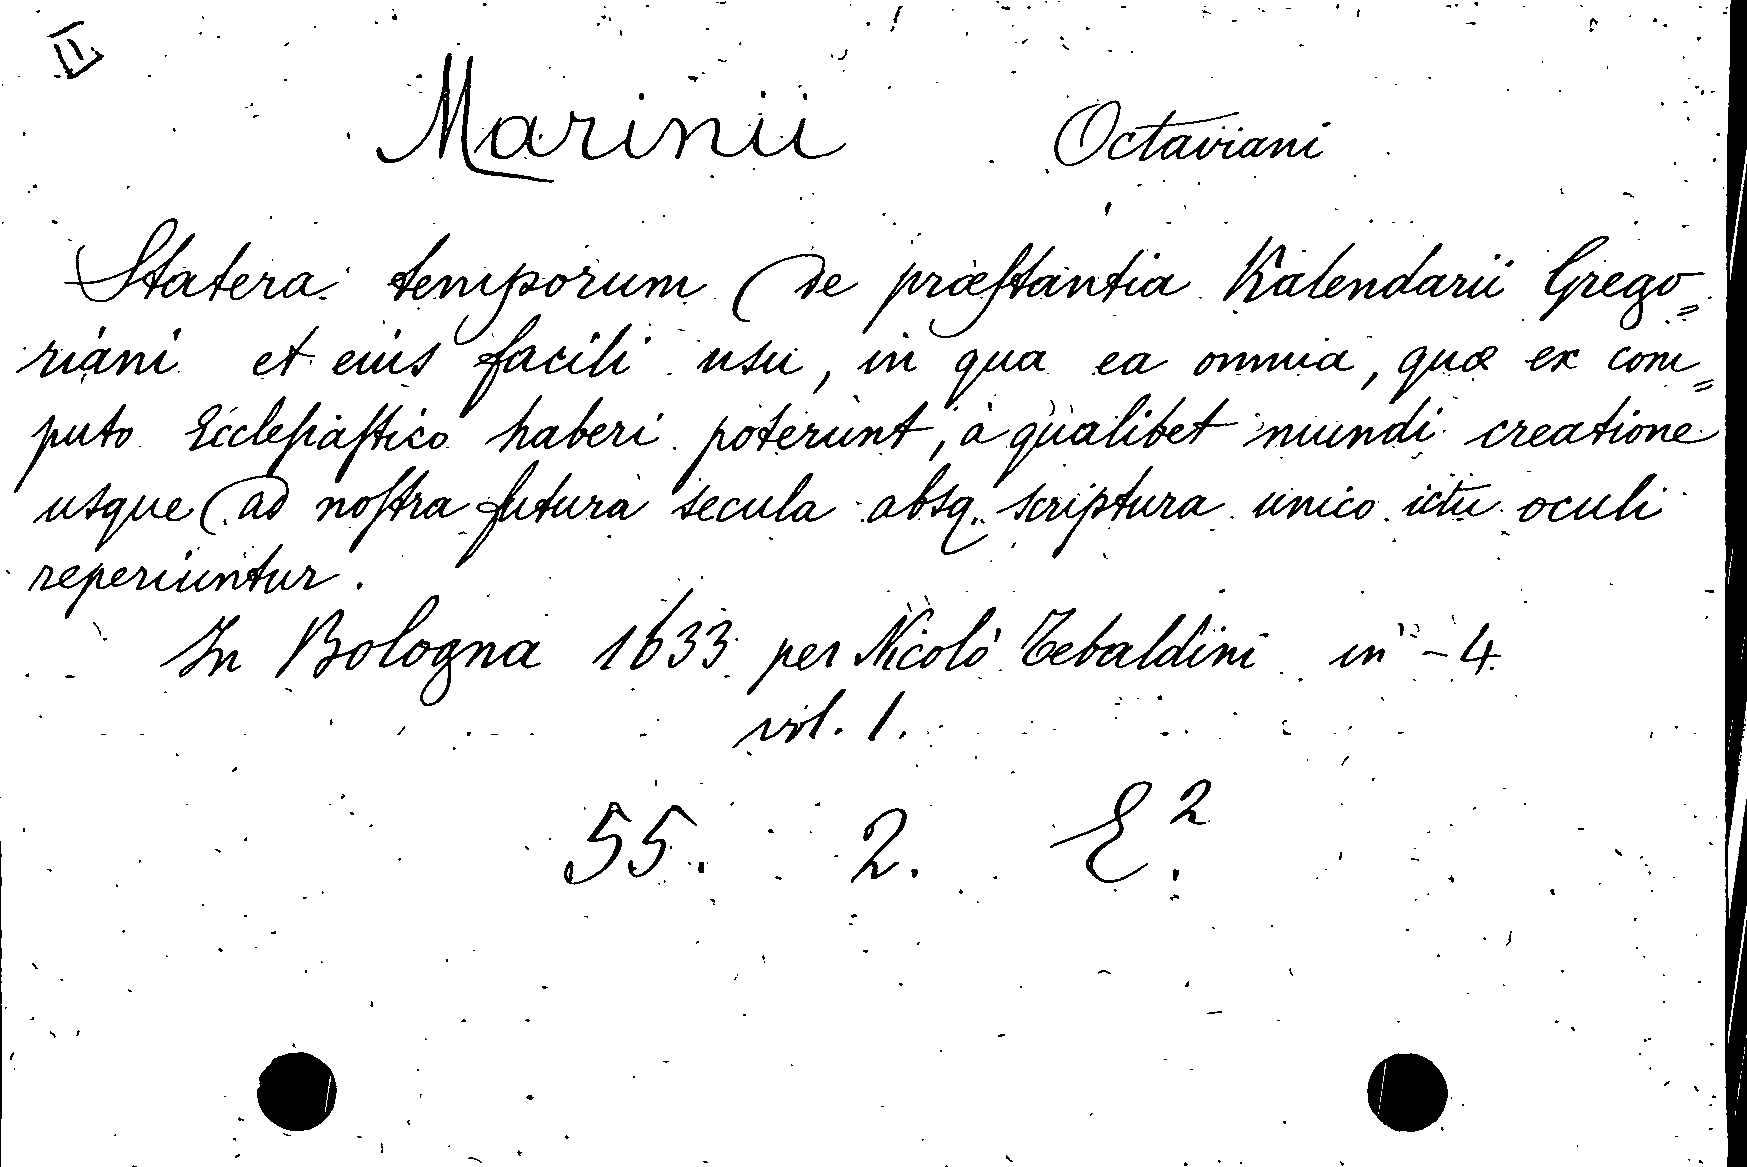 II
Marinii Octaviani
Statera temporum de præstantia Kalendarii Grego=
riani et eius facili usu, in qua ea omnia, quæ ex com=
puto Ecclesiastico haberi poterunt, à qualibet mundi creatione
usque ad nostra futura secula absq. scriptura unico ictu oculi
reperiuntur.
In Bologna 1633 per Nicolò Tebaldini in-4
vol. 1.
55. 2. E².